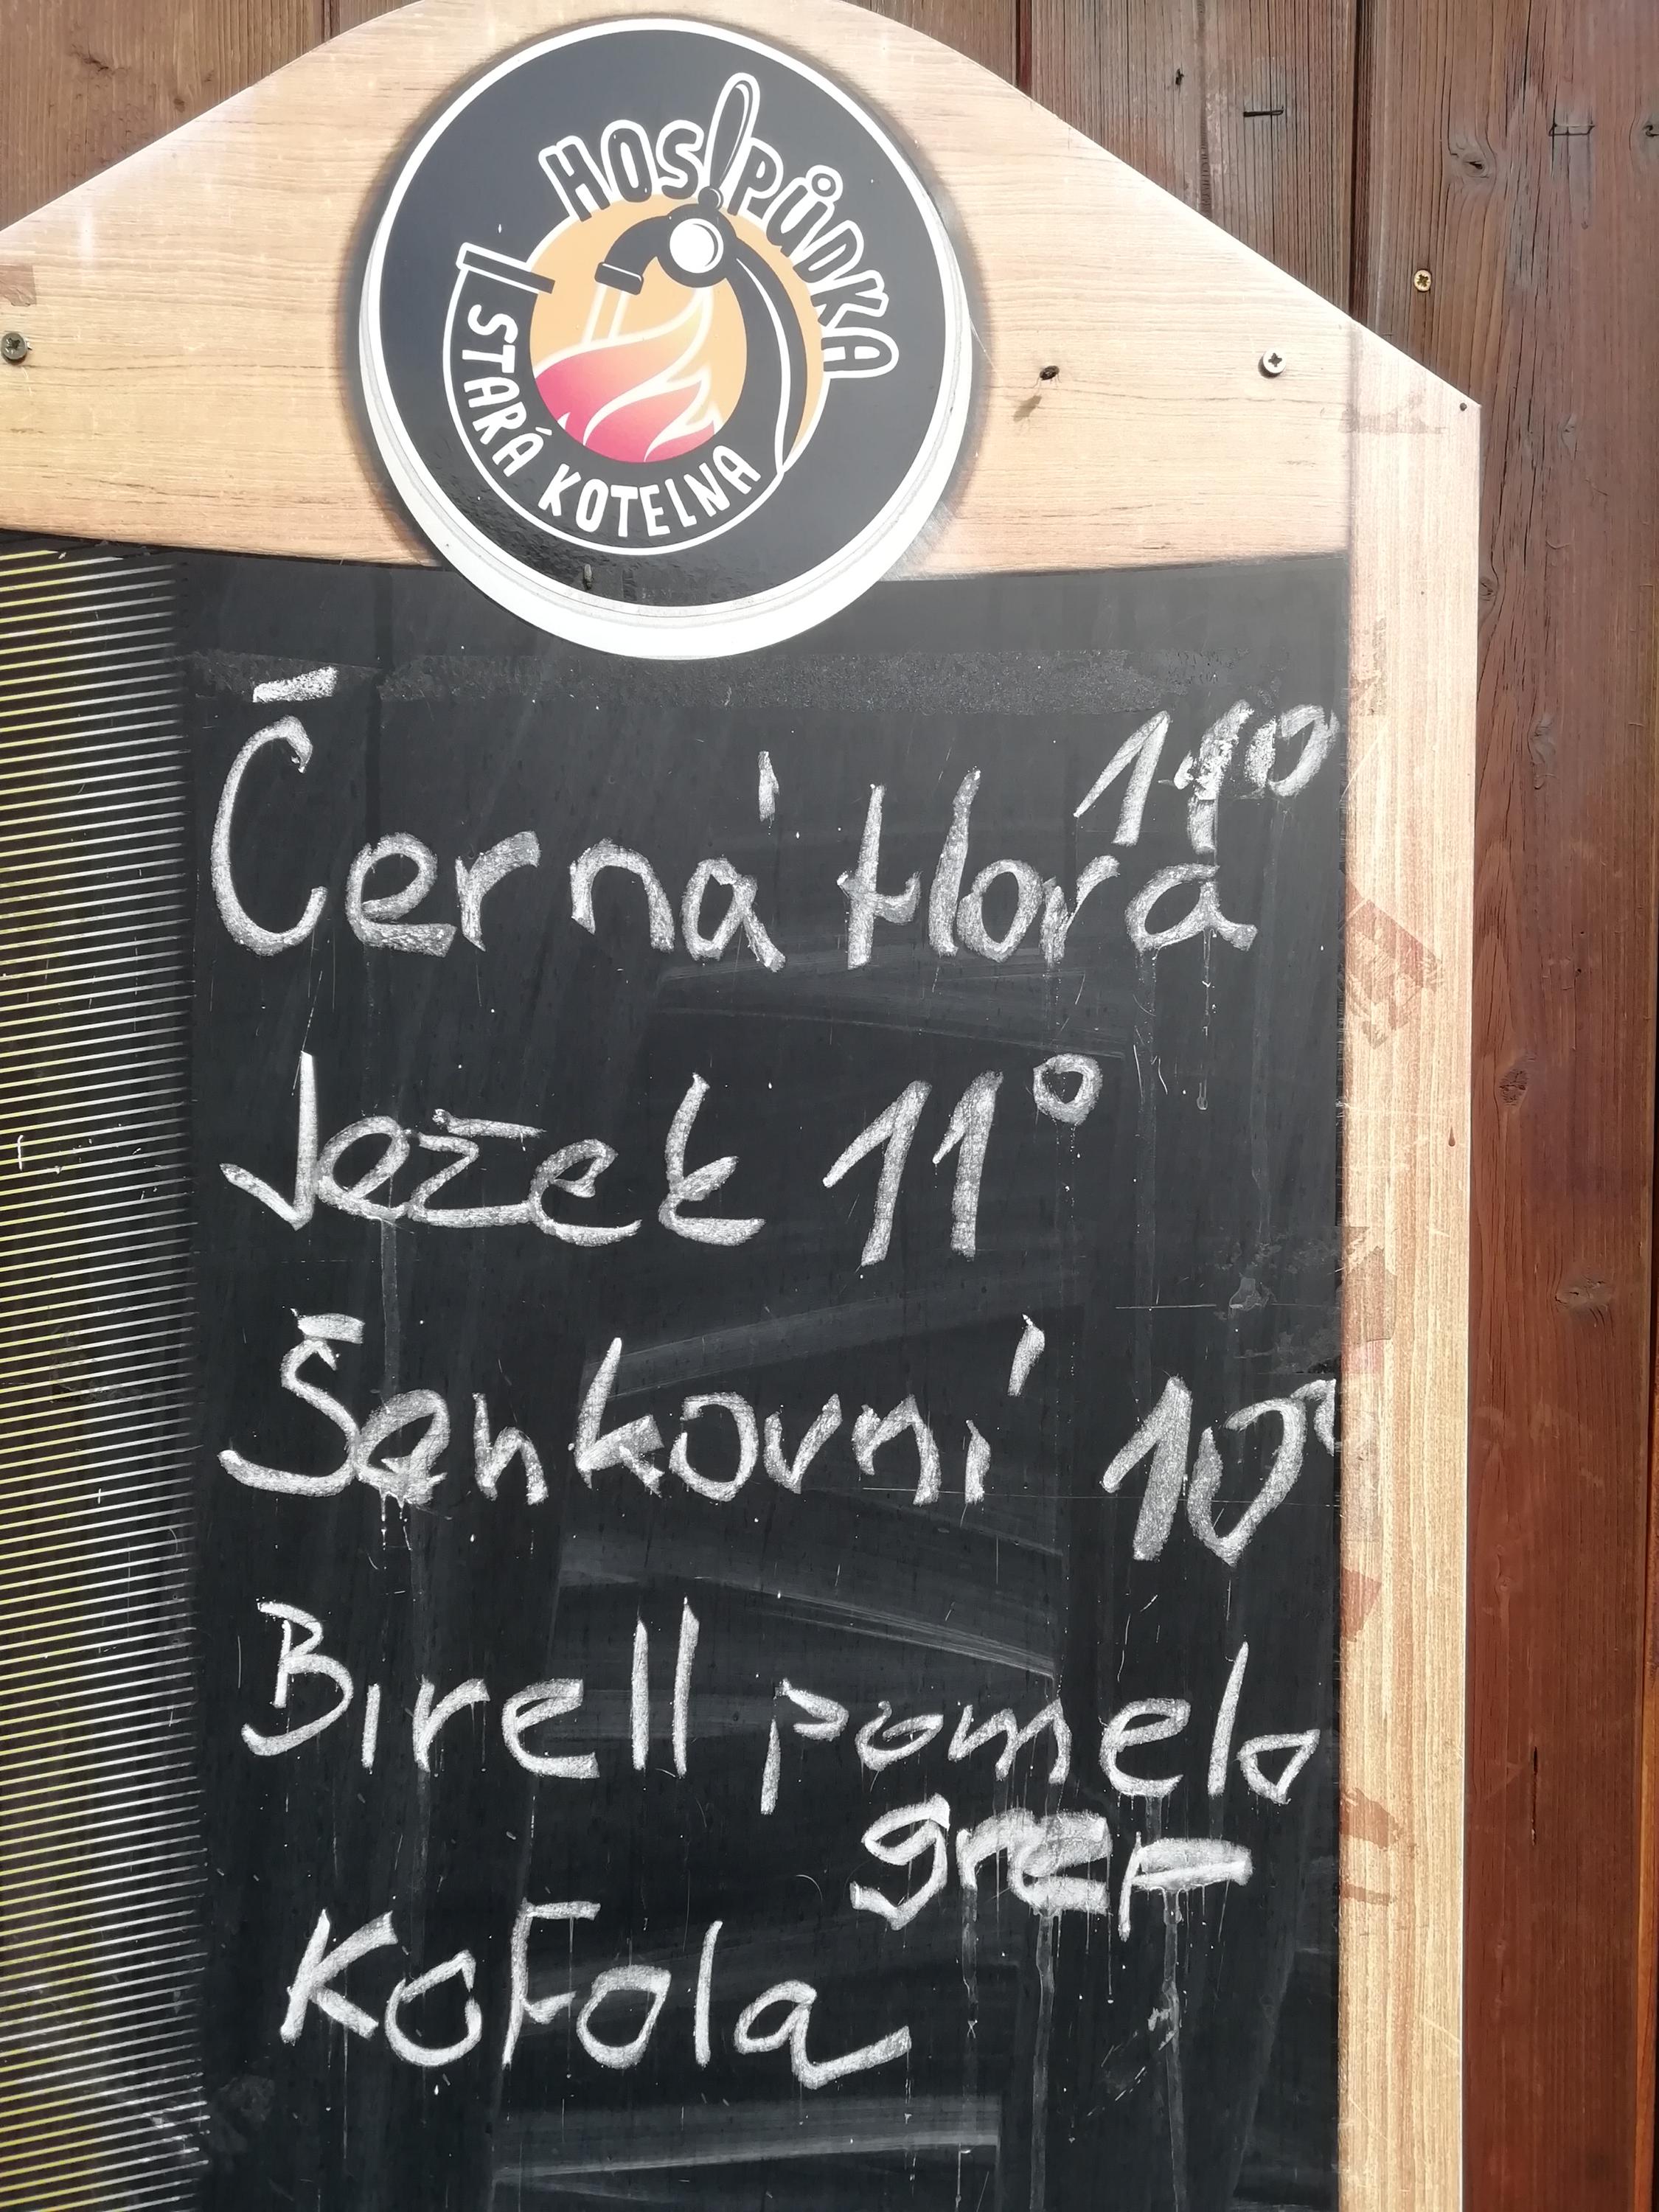 HOSPŮDKA
STARÁ KOTELNA
Černá Hora
Ježek 11°
Šenkovní 10°
Birell pomelo
gref
Kofola